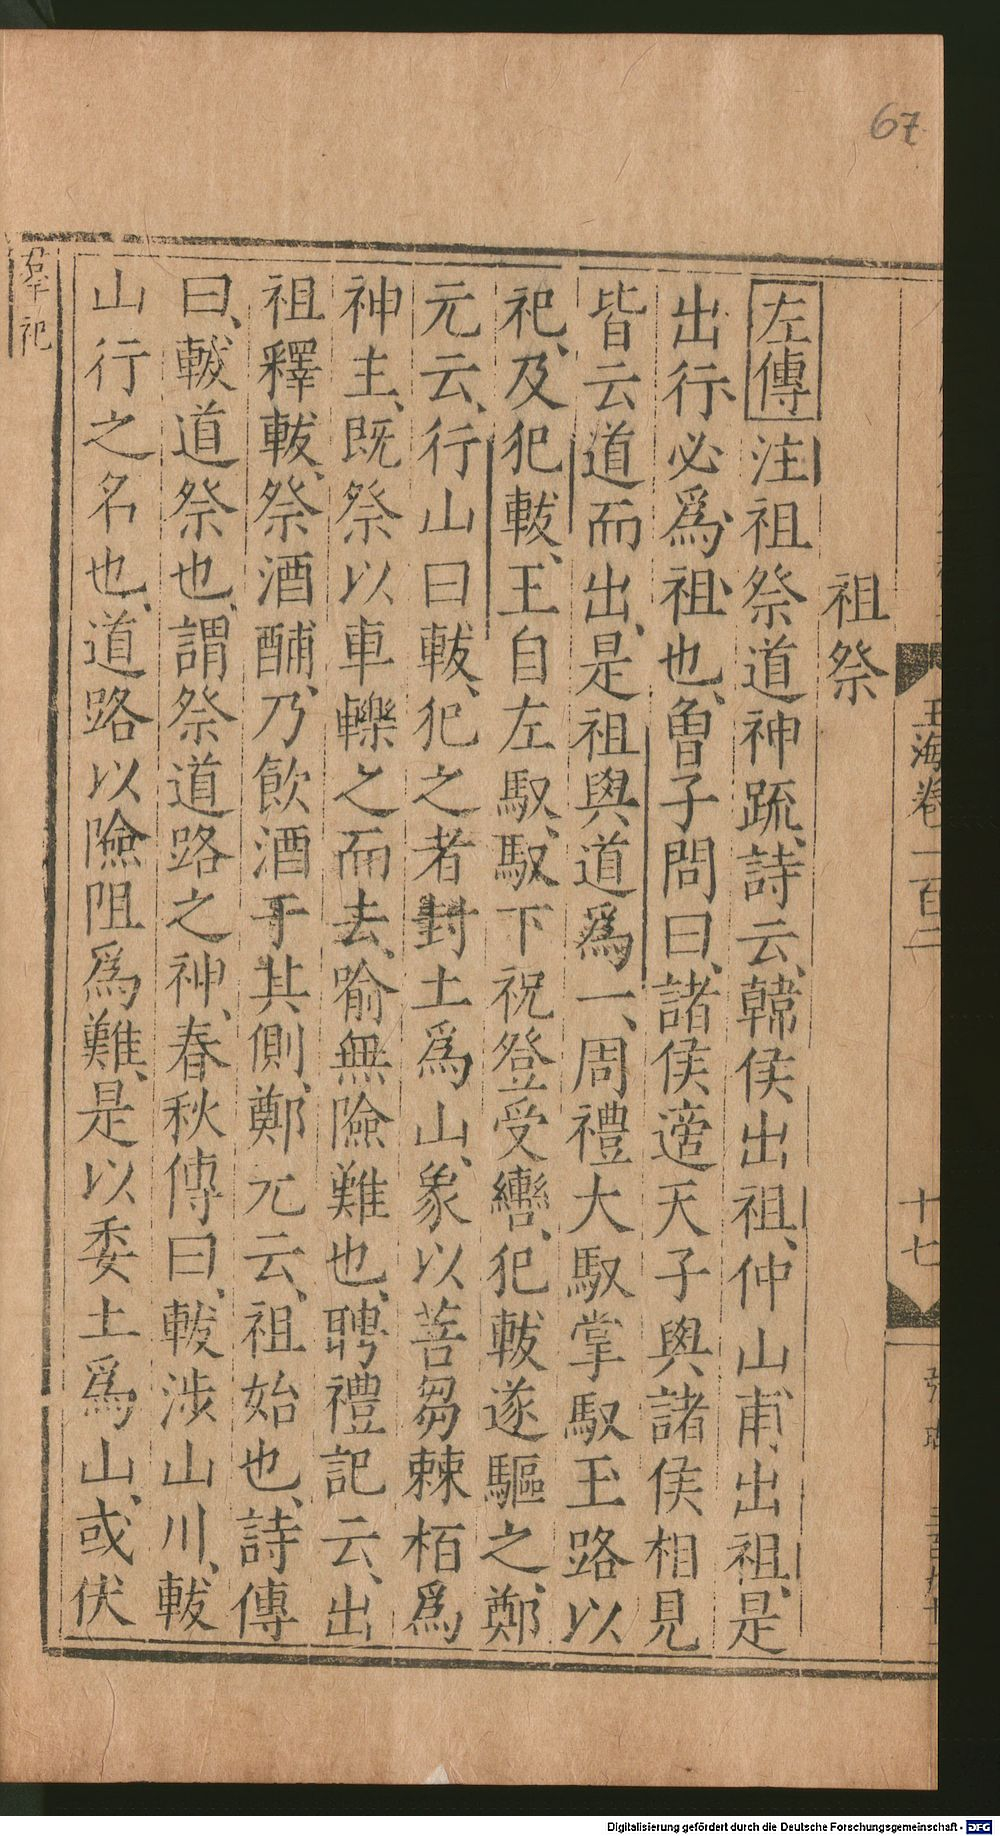 67
玉海卷一百二
十七
祖祭
左傳注祖祭道神疏、詩云、韓侯出祖、仲山甫出祖、是
出行必爲祖也、曾子問曰、諸侯適天子與諸侯相見
皆云道而出、是祖與道爲一、周禮大馭掌馭玉路以
祀、及犯軷、王自左馭、馭下祝登受轡、犯軷遂驅之、鄭
元云、行山曰軷、犯之者封土爲山、象以菩芻棘栢爲
神主、既祭以車轢之而去、喻無險難也、聘禮記云、出
祖釋軷、祭酒酺、乃飲酒于其側、鄭元云、祖始也、詩傳
曰、軷道祭也、謂祭道路之神、春秋傳曰、軷涉山川、軷
山行之名也、道路以險阻爲難、是以委土爲山、或伏
羣祀
Digitalisierung gefördert durch die Deutsche Forschungsgemeinschaft - DFG